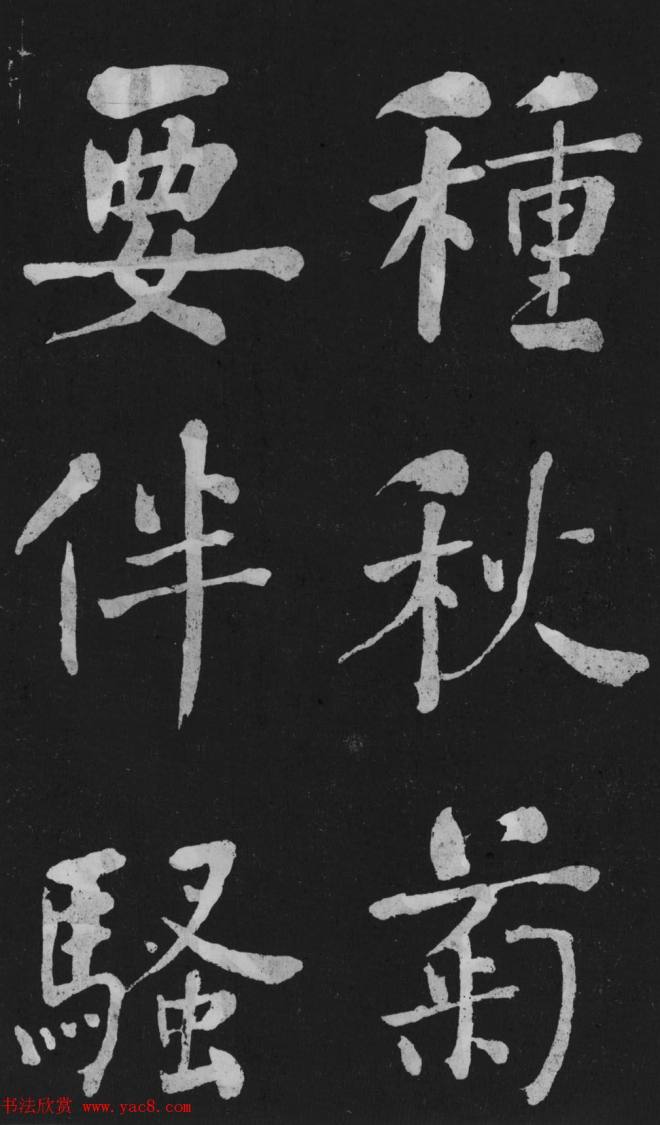 種秋菊
要伴騷
书法欣赏 www.yac8.com